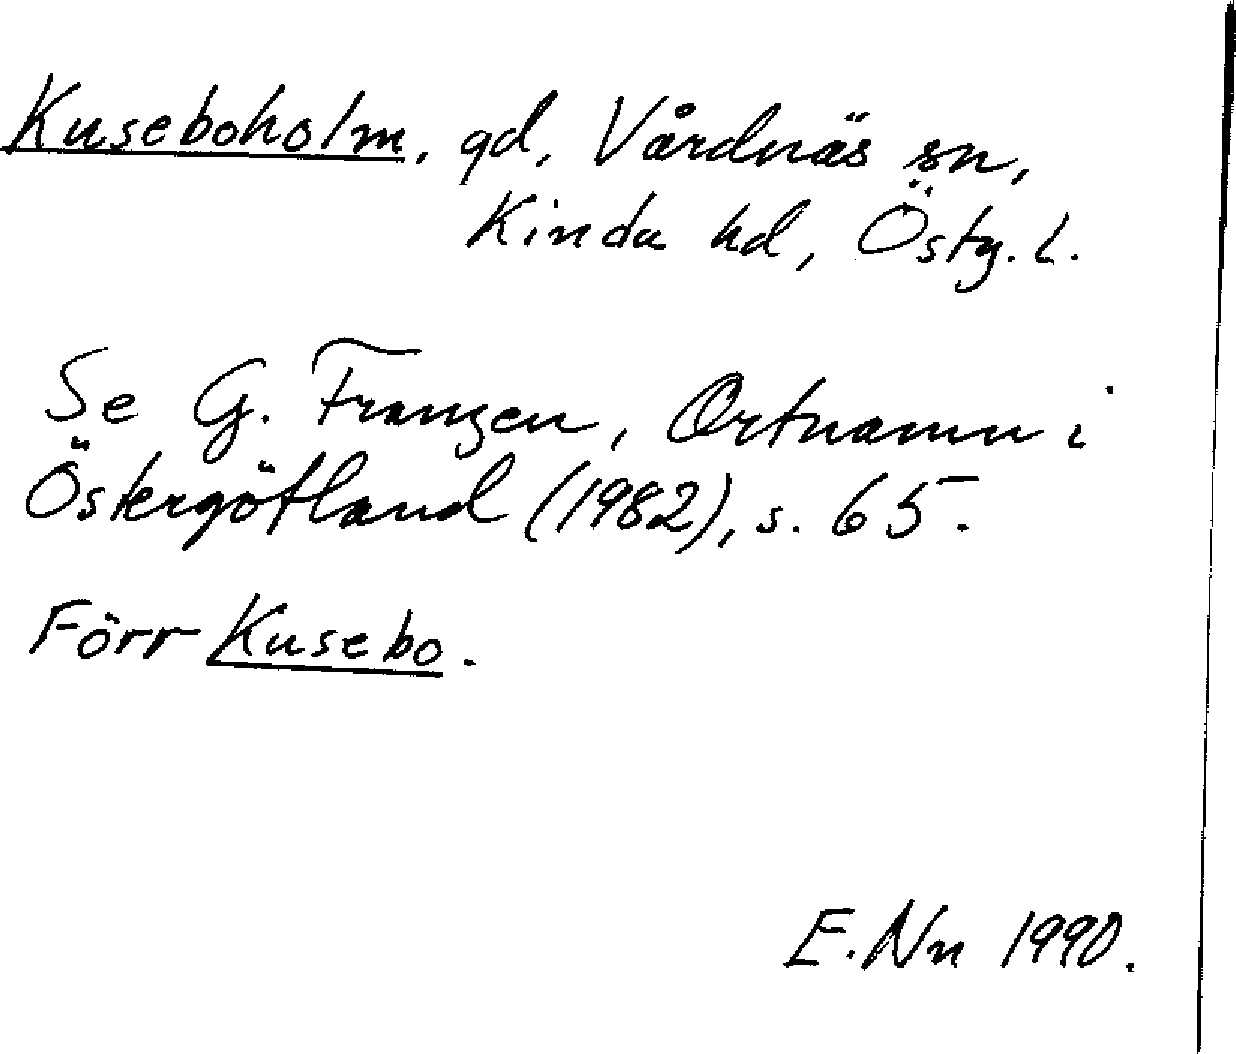 Kuseboholm, gd, Vårdnäs sn,
Kinda hd, Östg. l.
Se G. Franzén, Ortnamn i
Östergötland (1982), s. 65.
Förr Kusebo.
E. Nn 1990.